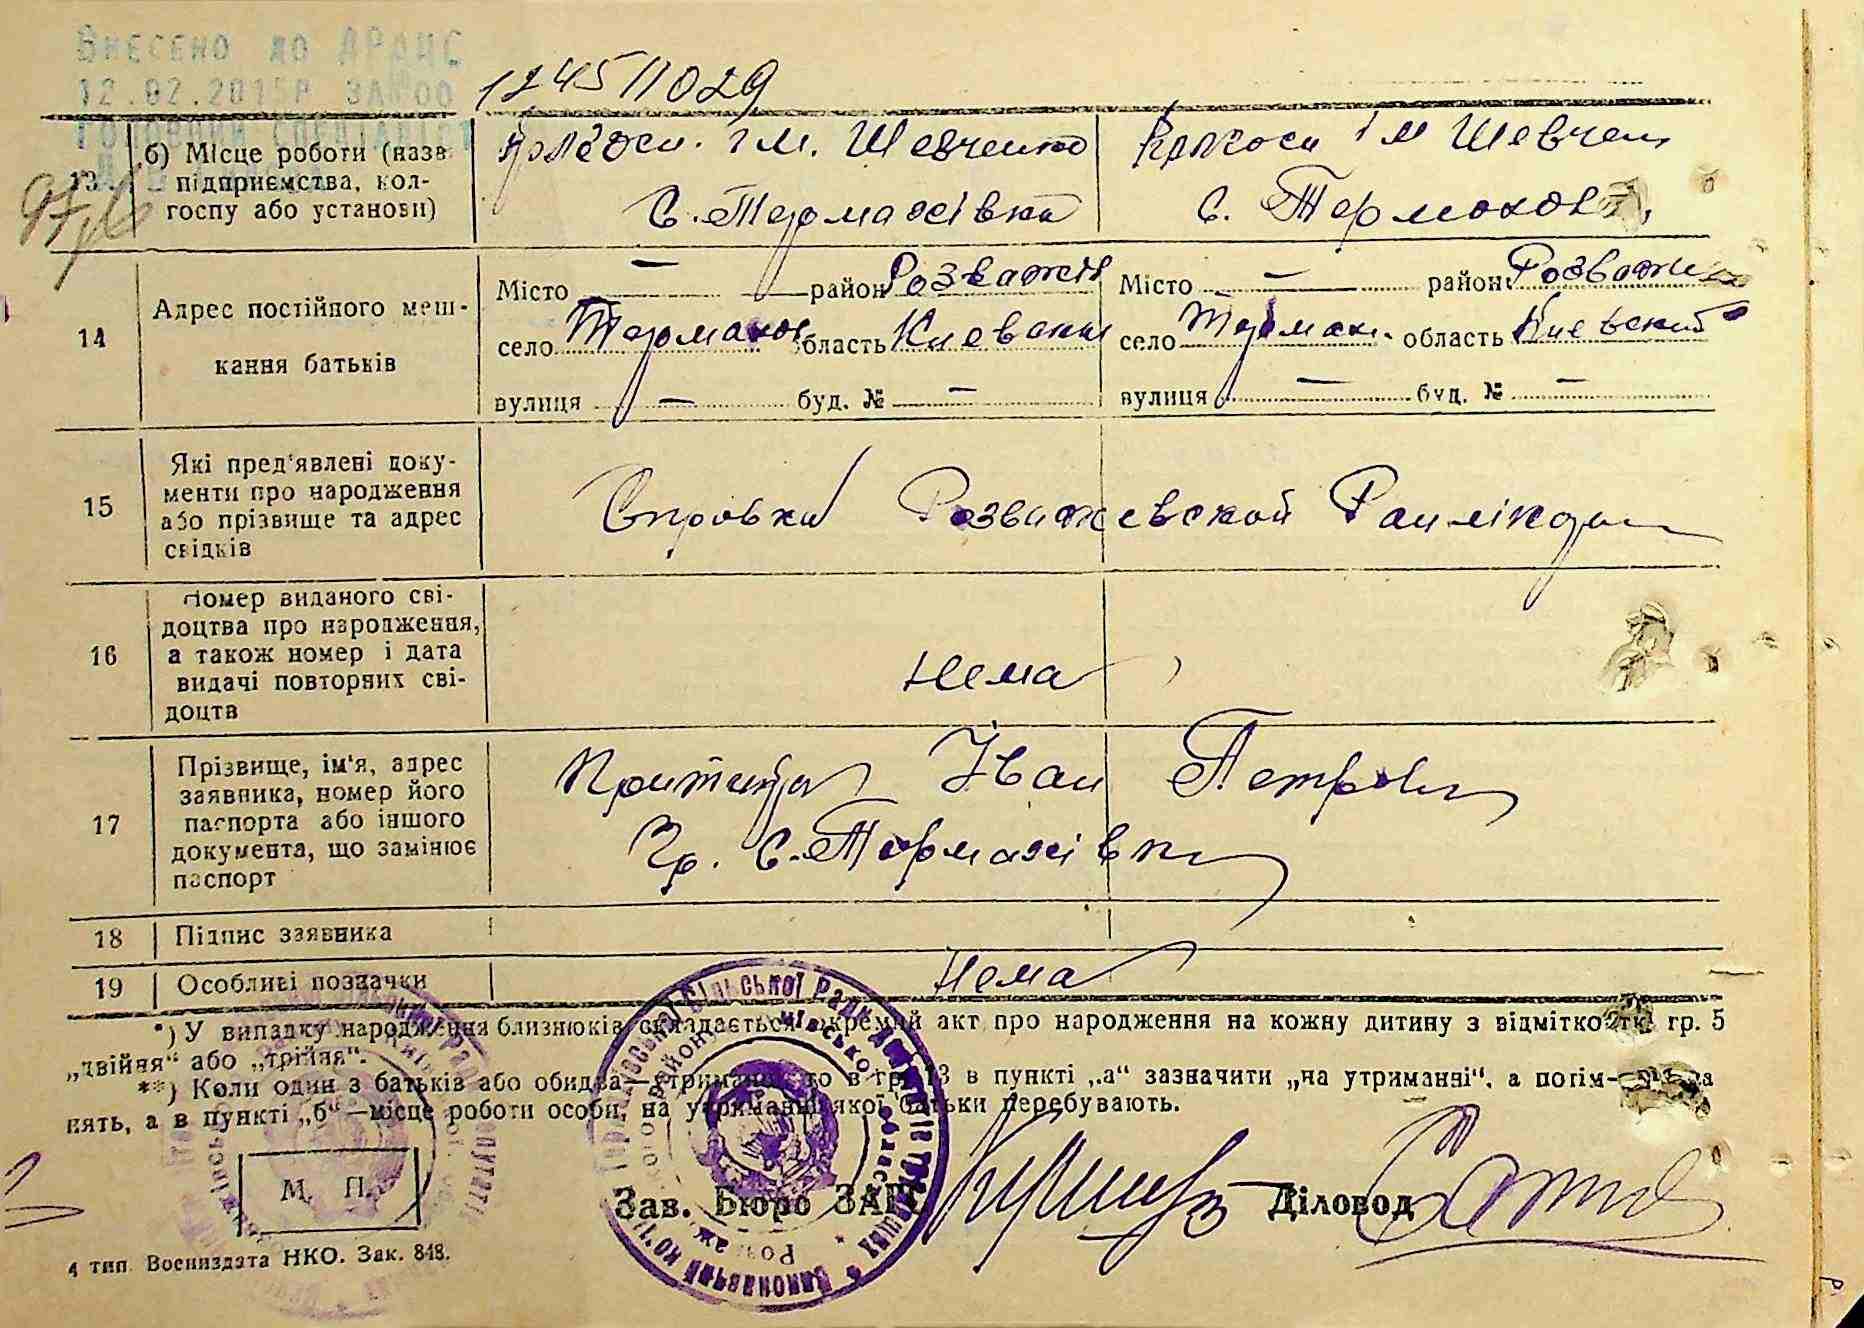 Внесено до ДРАЦС
12.02.2015р ЗА № 00
Головний спеціаліст
124511029
13. б) Місце роботи (назв. підприємства, колгоспу або установи)
Колгосп. ім. Шевченко
с. Термахівка
Колгосп ім Шевчен
с. Термохов
14
Адрес постійного мешкання батьків
Місто — район Розважів
село Термахов область Киевский
вулиця — буд. № —
Місто — район Розважи
село Термах. область Киевский
вулиця — буд. № —
15
Які пред'явлені документи про народження або прізвище та адрес свідків
Справка Розважевской
16
Номер виданого свідоцтва про народження, а також номер і дата видачі повторних свідоцтв
Нема
17
Прізвище, ім'я, адрес заявника, номер його паспорта або іншого документа, що замінює паспорт
Іван Петров
Гр. с. Термахівки
18 Підпис заявника
19 Особливі позначки
Нема
*) У випадку народження близнюків складається окремий акт про народження на кожну дитину з відміткою в гр. 5
„двійня“ або „трійня“.
**) Коли один з батьків або обидва—утриманці, то в гр. 13 в пункті „а“ зазначити „на утриманні“, а
нять, а в пункті „б“—місце роботи особи, на утриманні якої батьки перебувають.
М. П.
Зав. Бюро ЗАГС
Діловод
4 тип. Воениздата НКО. Зак. 848.